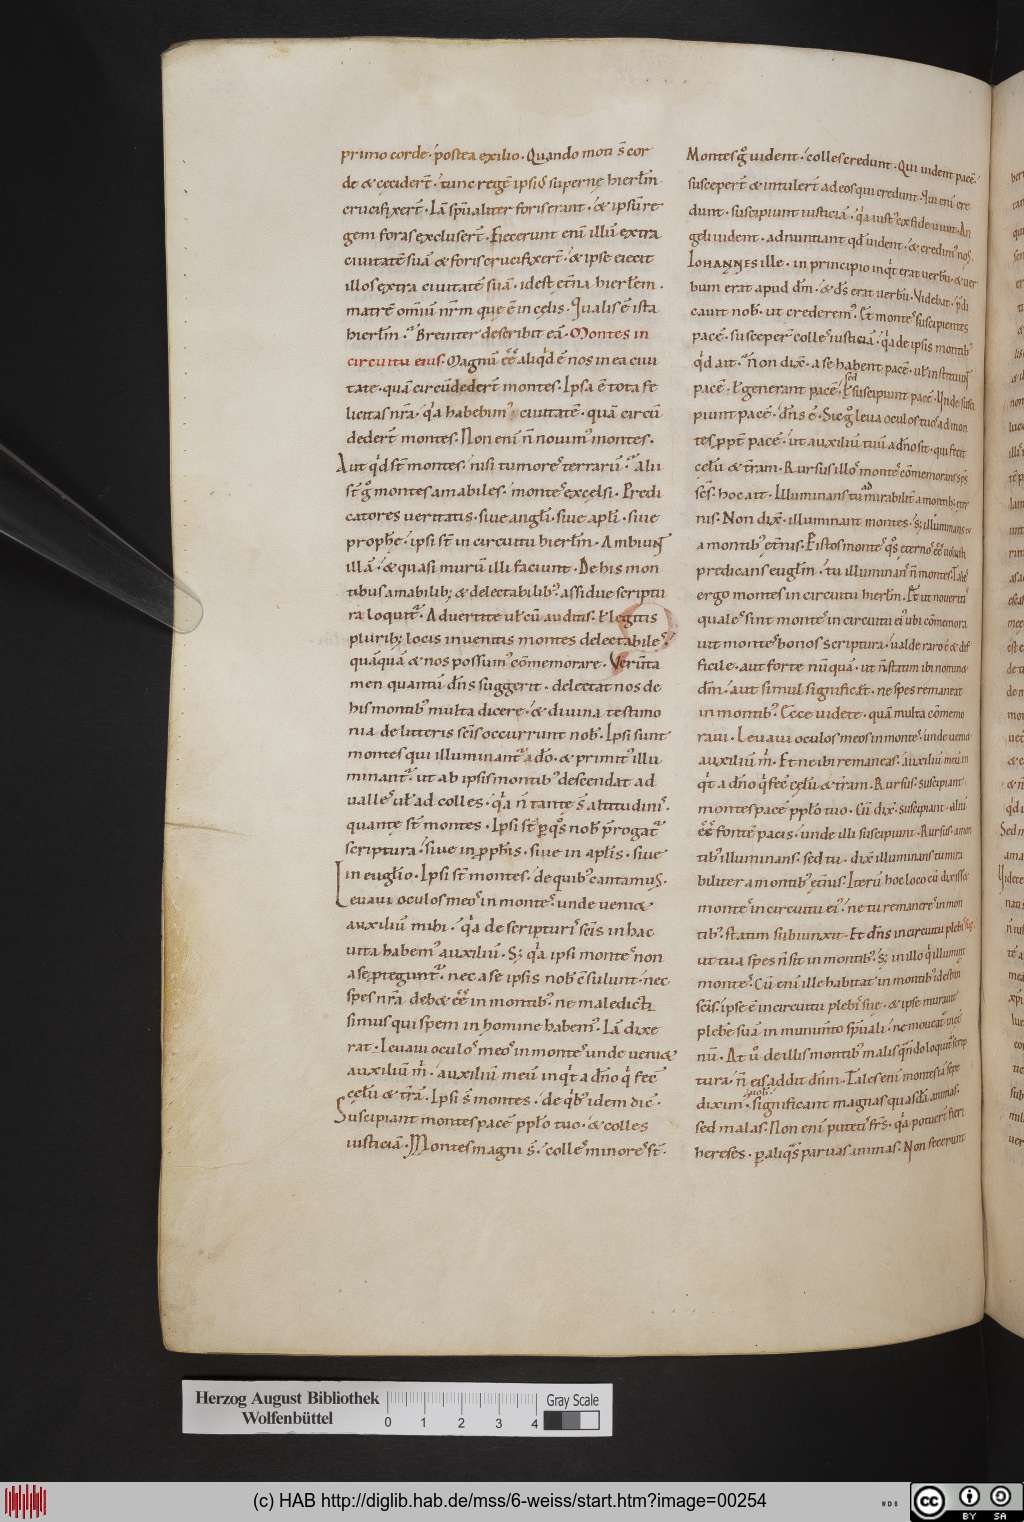 primo corde· postea exilio· Quando moti s̄ cor
de & cecidert̄· tunc regē ipsiꝰ supernę hierl̄m
crucifixert̄· Iā sp̄ualiter foris erant· & ipsū re
gem foras exclusert̄· Eiecerunt enī illū extra
ciuitatē suā & foris crucifixert̄· & ipse eiecit
illos extra ciuitatē suā· idest ęt̄na hierl̄em·
matrē omīū nr̄m que ē in cęlis· Qualis ē ista
hierl̄m· Breuiter describit eā· Montes in
circuitu eius· Magnū ēē aliqͥd ē nos in ea ciui
tate· quā circūdedert̄ montes· Ipsa ē tota fe
licitas nr̄a· qͥa habebimꝰ ciuitatē· quā circū
dedert̄ montes· Non enī n̄ nouimꝰ montes·
Aut qͥd st̄ montes· nisi tumores terrarū· Alii
st̄ gͦ montes amabiles· montes excelsi· Predi
catores ueritatis· siue angl̄i· siue apl̄i· siue
prophē· ipsi st̄ in circuitu hierl̄m· Ambiunt
illā· & quasi murū illi faciunt· De his mon
tibus amabilib; & delectabilibꝰ· assidue scriptu
ra loquitᷣ· Aduertite ul̄ cū auditis· ł legitis
plurib; locis inuentis montes delectabiles·
quāquā & nos possumꝰ cōmemorare· Verūta
men quantū dn̄s suggerit· delectat nos de
his montibꝰ multa dicere· & diuina testimo
nia de litteris sc̄is occurrunt nob̄· Ipsi sunt
montes qui illuminantᷣ a dō· & primitꝰ illu
minantᷣ· ut ab ipsis montibꝰ descendat ad
ualles ul̄ ad colles· qͥa n̄ tante s̄ altitudinis·
quantę st̄ montes· Ipsi st̄ ꝑ qͦs nob̄ p̄rogatᷣ
scriptura· siue in pph̄is· siue in apl̄is· siue
in euglīo· Ipsi st̄ montes· de quibꝰ cantamus·
Leuaui oculos meos in montes unde ueni&
auxiliū mihi· qͥa de scripturis sc̄is in hac
uita habemꝰ auxiliū· S; qͥa ipsi montes non
a se ꝓteguntᷣ· nec a se ipsis nob̄ c̄sulunt· nec
spes nr̄a deb& ēē in montibꝰ· ne maledicti
simus qui spem in homine habemꝰ· Iā dixe
rat· Leuaui oculos meos in montes unde ueni&
auxiliū m̄· auxiliū meū inqͥt a dn̄o qͥ fec̄
cęlū & tr̄ā· Ipsi s̄ montes· de qͥbꝰ idem dic̄·
Suscipiant montes pacē ppl̄o tuo· & colles
iusticiā· Montes magni s̄· colles minores st̄·
Montes gͦ uident· colles credunt· Qui uident pacē·
suscepert̄ & intulert̄ ad eos qui credunt· Qui enī cre
dunt· suscipiunt iusticiā· qͥa iustꝰ ex fide uiuit· An
gl̄i uident· adnuntiant qd̄ uident· & credimꝰ nos·
IOHANNES ille· in principio inqͥt erat uerbū· & uer
bum erat apud dm̄· & ds̄ erat uerbū· Videbat· p̄di
cauit nob̄· ut crederemꝰ· Et montes suscipientes
pacē· suscepert̄ colles iusticiā· qͥa de ipsis montibꝰ
qͥd ait· n̄on dix̄· a se habent pacē· ul̄ instituunt
pacē· ł generant pacē· ł sed suscipiunt pacē· Unde susci
piunt pacē· dn̄s ē· Sic gͦ leua oculos tuos ad mon
tes ꝓpt̄ pacē· ut auxiliū tuū a dn̄o sit· qui fecit
cęlū & tr̄am· Rursus illos montes cōmemorans sp̄s
sc̄s· hoc ait· Illuminans tu admirabilit̄ a montib; ęter
nis· Non dix̄· illuminant montes· s; illuminans tu
a montibꝰ ęt̄nis· P istos montes qͦs ęternos ēē uoluisti
predicans euglīm· tu illuminans n̄ montes· Tales
ergo montes in circuitu hierl̄m· Et ut noueritis
quales sint montes in circuitu eiꝰ ubi cōmemora
uit montes bonos scriptura· ualde raro ē & dif
ficile· aut forte nūquā· ut n̄ statim ibi nominet
dm̄· aut simul significet· ne spes remaneat
in montibꝰ· Ecce uidete· quā multa cōmemo
raui· Leuaui oculos meos in montes· unde ueniat
auxiliū m̄· Et ne ibi remaneas· auxiliū meū in
qͥt a dn̄o qͥ fec̄ cęlū & tr̄am· Rursus· suscipiant
montes pacē ppl̄o tuo· Cū dix̄· suscipiant· aliū
ēē fontē pacis· unde illi suscipiunt· Rursus· a mon
tibꝰ illuminans· sed tu· dix̄ illuminans tu mira
biliter a montibꝰ ęt̄nis· Iterū hoc loco cū dixisset
montes in circuitu eiꝰ· ne tu remaneres in mon
tibꝰ· statim subiunxit· Et dn̄s in circuitu plebis suę·
ut tua spes n̄ sit in montibꝰ· s; in illo qͥ illuminat
montes· Cū enī ille habitat in montibꝰ idest in
sc̄is· ipse ē in circuitu plebis suę· & ipse murauit
plebē suā in munim̄to sp̄uali· ne moueatᷣ in &er
nū· At ū de illis montibꝰ malis qn̄do loquitᷣ scrip
tura· n̄ eis addit dn̄m· Tales enī montes iā sępe
diximꝰ uob̄· significant magnas quasdā animas·
sed malas· Non enī putetis frs̄· qͥa potuert̄ fieri
hereses· ꝑ aliqͣs paruas animas· Non fecerunt
Herzog August Bibliothek
Wolfenbüttel
0 1 2 3 4
Gray Scale
(c) HAB http://diglib.hab.de/mss/6-weiss/start.htm?image=00254
WDB
cc BY SA